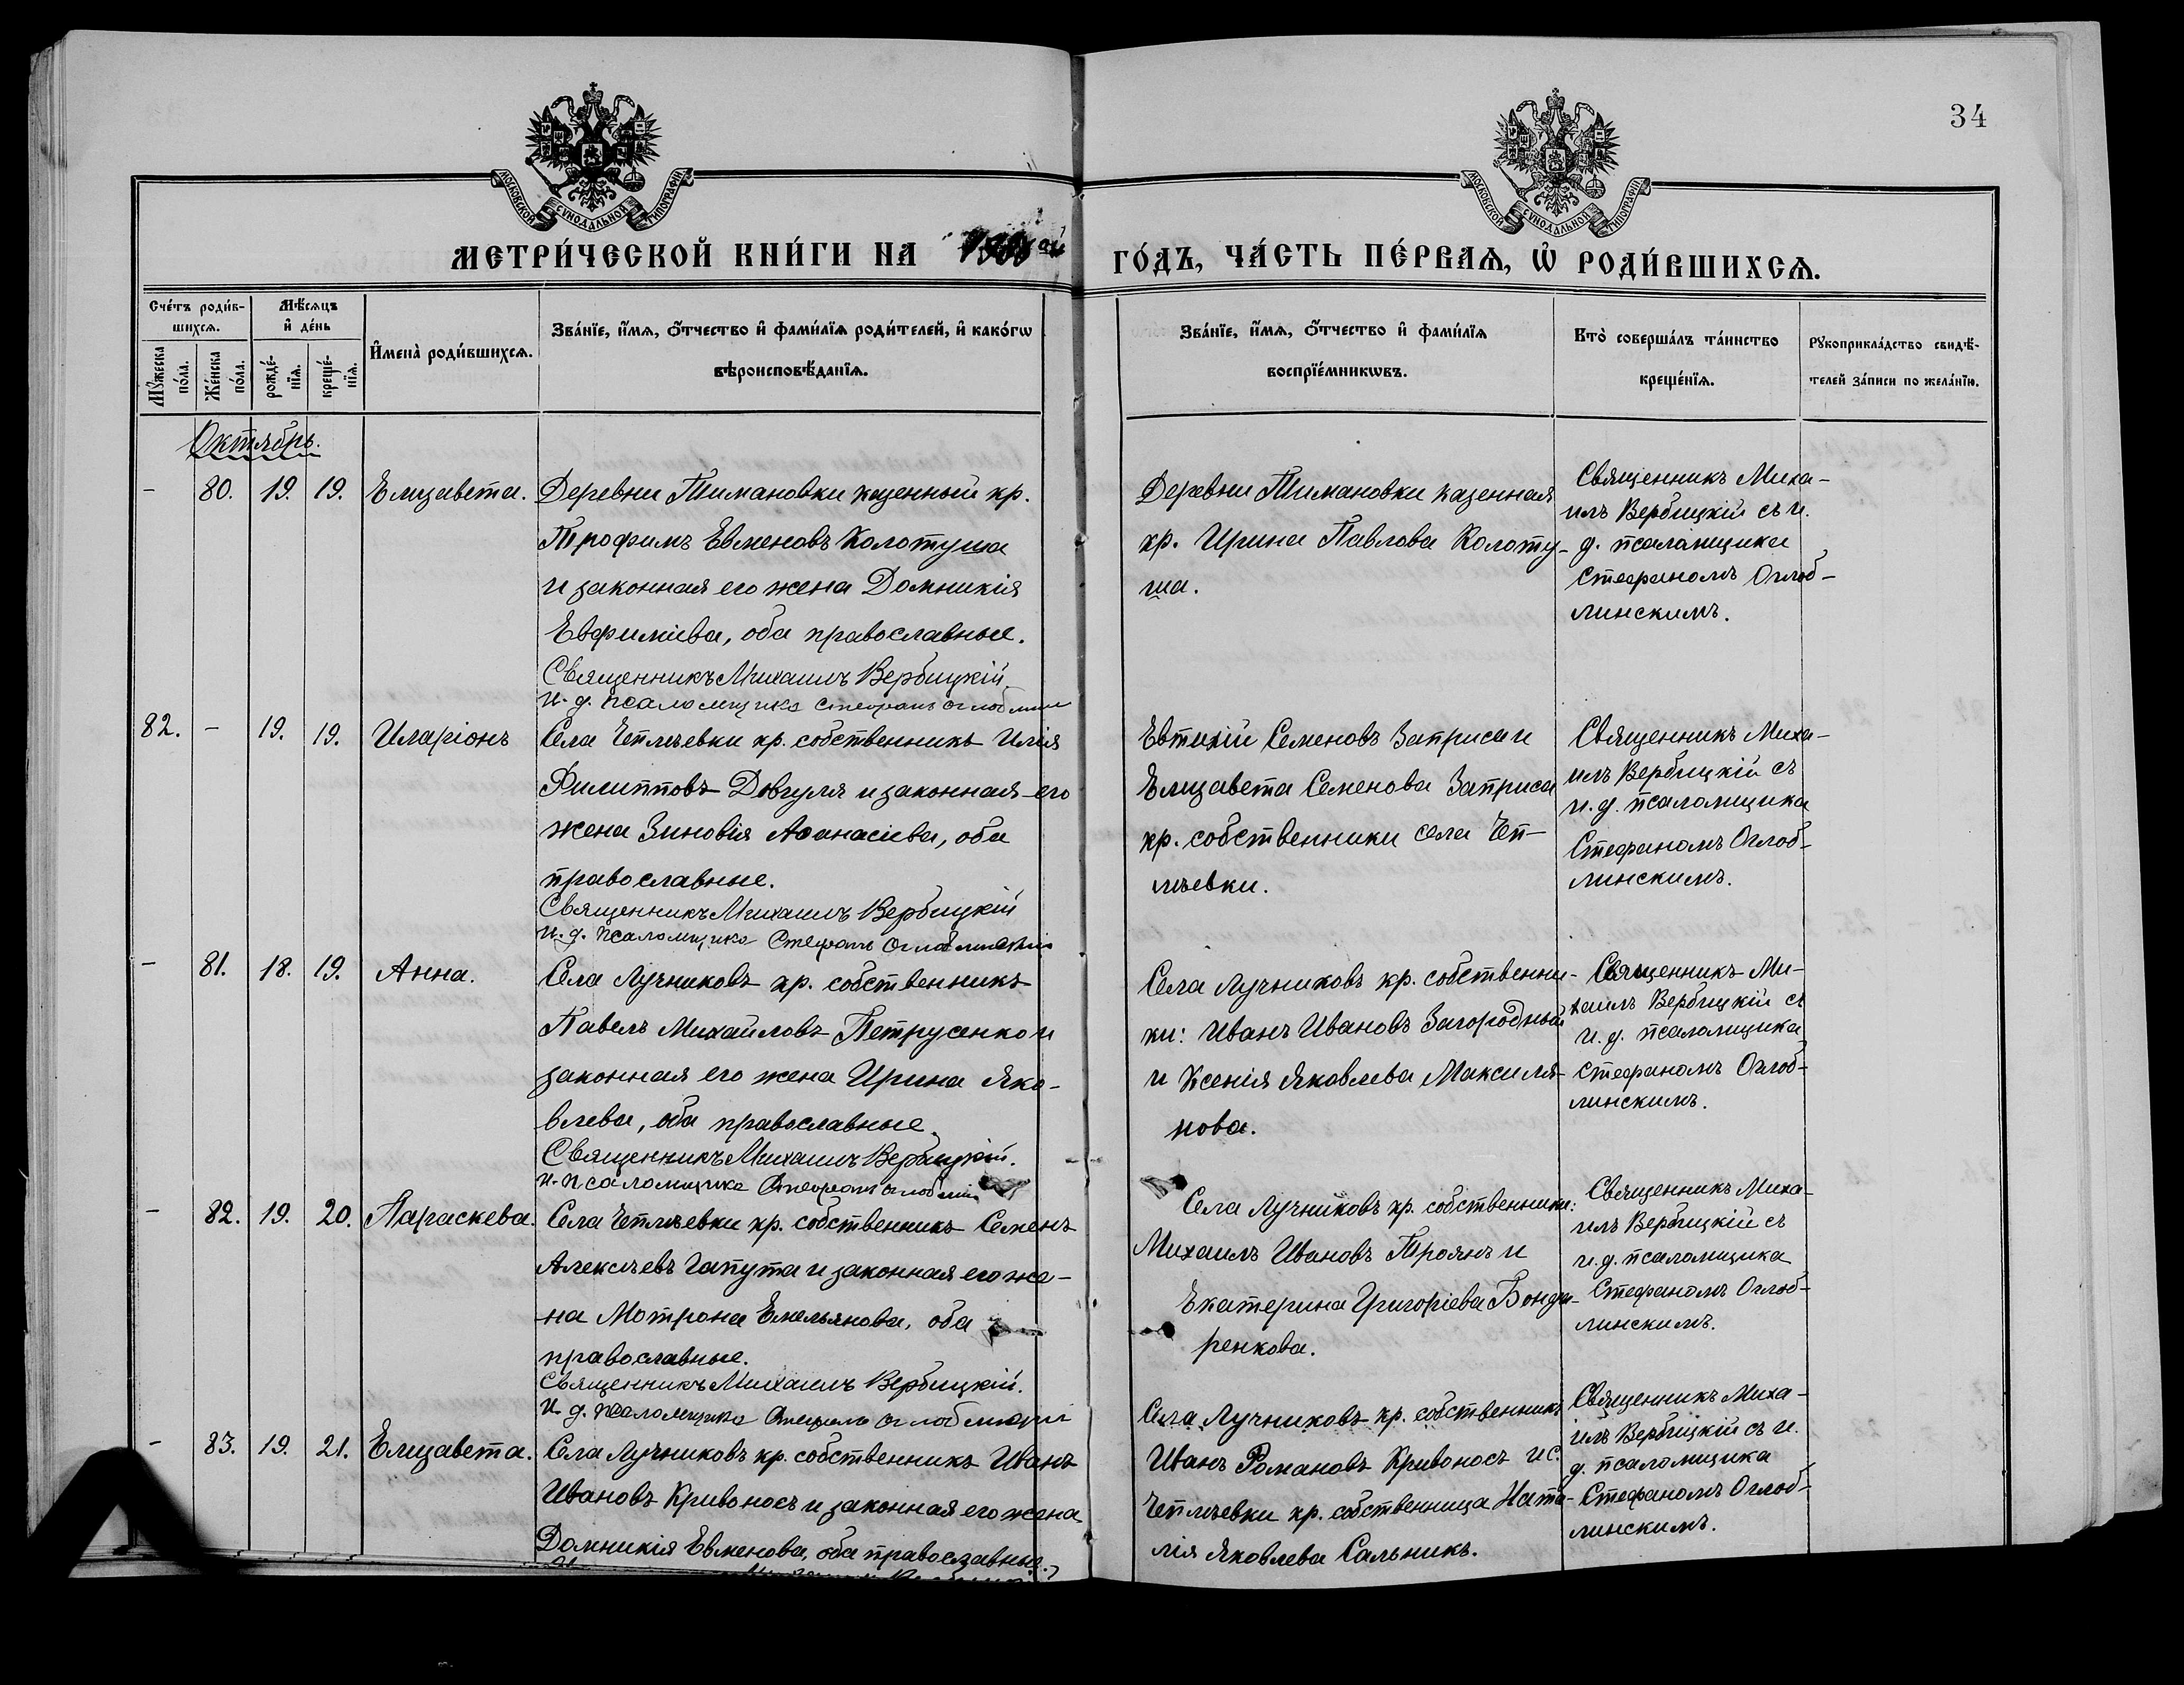 34
МОСКОВСКОЙ СѴНОДАЛЬНОЙ ТИПОГРАФІИ
МОСКОВСКОЙ СѴНОДАЛЬНОЙ ТИПОГРАФІИ
МЕТРИ́ЧЕСКОЙ КНИ́ГИ НА
ГО́ДЪ, ЧА́СТЬ ПЕ́РВАѦ, Ѡ РОДИ́ВШИХСѦ.
Сче́тъ роди́в-
шихсѧ.
Мѣ́сѧцъ
и҆ де́нь
Мꙋ́жеска
по́ла.
Же́нска
по́ла.
рожде́-
нїѧ.
креще́-
нїѧ.
И҆мена̀ роди́вшихсѧ.
Зва́нїе, и҆́мѧ, ѻ҆́тчество и҆ фами́лїѧ роди́телей, и҆ како́гѡ
вѣроисповѣ́данїѧ.
Зва́нїе, и҆́мѧ, ѻ҆́тчество и҆ фами́лїѧ
воспрїе́мникѡвъ.
Кто̀ соверша́лъ та́инство
креще́нїѧ.
Рꙋкоприкла́дство свидѣ́-
телей за́писи по жела́нїю.
Октябрь.
- 80. 19. 19. Елизавета. Деревни Тимановки казенный кр.
Трофимъ Евменовъ Колотуша
и законная его жена Домникія
Евфиміева, оба православные.
Священникъ Михаилъ Вербицкій
и. д. псаломщика Стефанъ
Деревни Тимановки казенная
кр. Ирина Павлова Колоту-
ша.
Священникъ Миха-
илъ Вербицкій съ и.
д. псаломщика
Стефаномъ Оглоб-
линскимъ.
82. - 19. 19. Иларіонъ Села Четлѣевки кр. собственникъ Илія
Филипповъ Довгуля и законная его
жена Зиновія Аѳанасіева, оба
православные.
Священникъ Михаилъ Вербицкій
и. д. псаломщика Стефанъ Оглоблинскій
Евтихій Семеновъ Заприса и
Елизавета Семенова Заприса
кр. собственники села Чет-
лѣевки.
Священникъ Миха-
илъ Вербицкій съ
и. д. псаломщика
Стефаномъ Оглоб-
линскимъ.
- 81. 18. 19. Анна. Села Лучниковъ кр. собственникъ
Павелъ Михайловъ Петрусенко и
законная его жена Ирина Яко-
влева, оба православные.
Священникъ Михаилъ Вербицкій.
и. псаломщика Стефанъ
Села Лучниковъ кр. собственни-
ки: Иванъ Ивановъ Загородный
и Ксенія Яковлева Максимя-
нова.
Священникъ Ми-
хаилъ Вербицкій съ
и. д. псаломщика
Стефаномъ Оглоб-
линскимъ.
- 82. 19. 20. Параскева. Села Четлѣевки кр. собственникъ Семенъ
Алексѣевъ Гапута и законная его же-
на Мотрона Емельянова, оба
православные.
Священникъ Михаилъ Вербицкій.
и. д. псаломщика Стефанъ Оглоблинскій
Села Лучниковъ кр. собственники:
Михаилъ Ивановъ Троянъ и
Екатерина Григоріева Бонда-
ренкова.
Священникъ Миха-
илъ Вербицкій съ
и. д. псаломщика
Стефаномъ Оглоб-
линскимъ.
- 83. 19. 21. Елизавета. Села Лучниковъ кр. собственникъ Иванъ
Ивановъ Кривоносъ и законная его жена
Домникія Евменова, оба православные.
Села Лучниковъ кр. собственникъ
Иванъ Романовъ Кривоносъ и с.
Четлѣевки кр. собственница Ната-
лія Яковлева Сальникъ.
Священникъ Миха-
илъ Вербицкій съ и.
д. псаломщика
Стефаномъ Оглоб-
линскимъ.